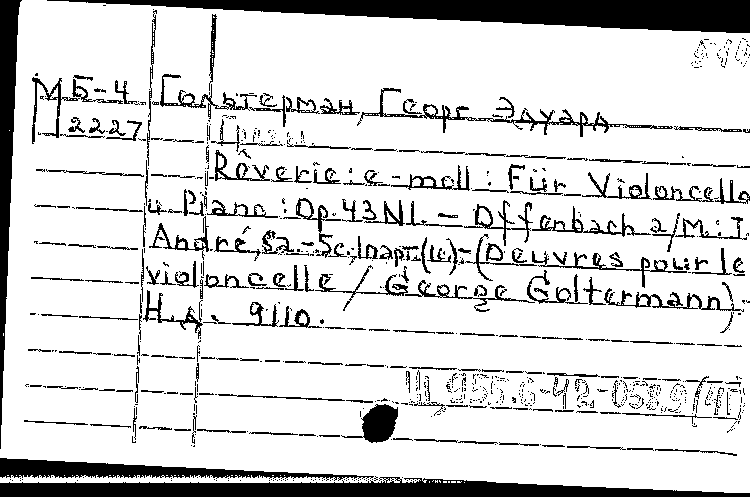 М Б-4 Гольтерман, Георг Эдуард
2227 Грезы.
Rêverie: e-moll: Für Violoncello
u. Piano: Op. 43 N1. – Offenbach a/M.: I.
André, – 5с., 1 парт. – (Oeuvres pour le
violoncelle / George Goltermann).
Н.д. 9110.
Щ 955.6-42-058.9(4Г)